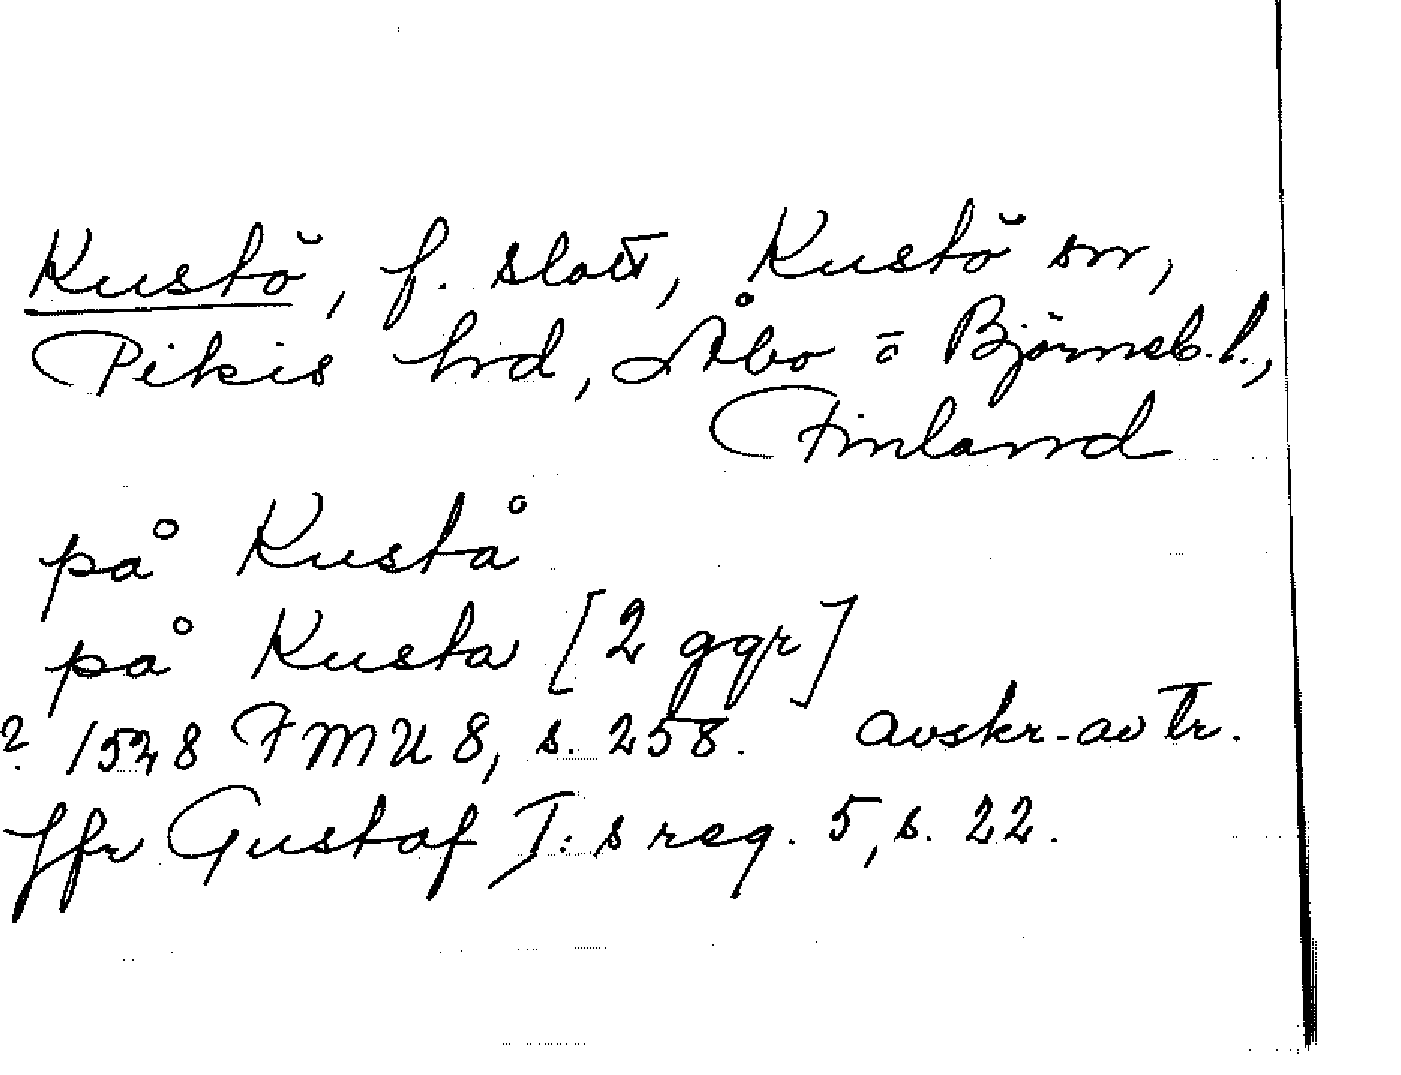 Kustö, f. slott, Kustö sn,
Pikis hrd, Åbo o Björneb. l.,
Finland
på Kustå
på Kusta [2 ggr]
? 1528 FMU 8, s. 258. avskr. av tr.
Jfr Gustaf I:s reg. 5, s. 22.